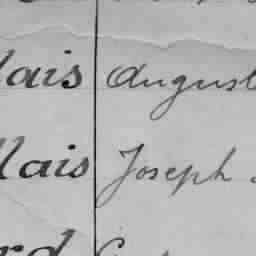 lais August
llais Joseph
rd